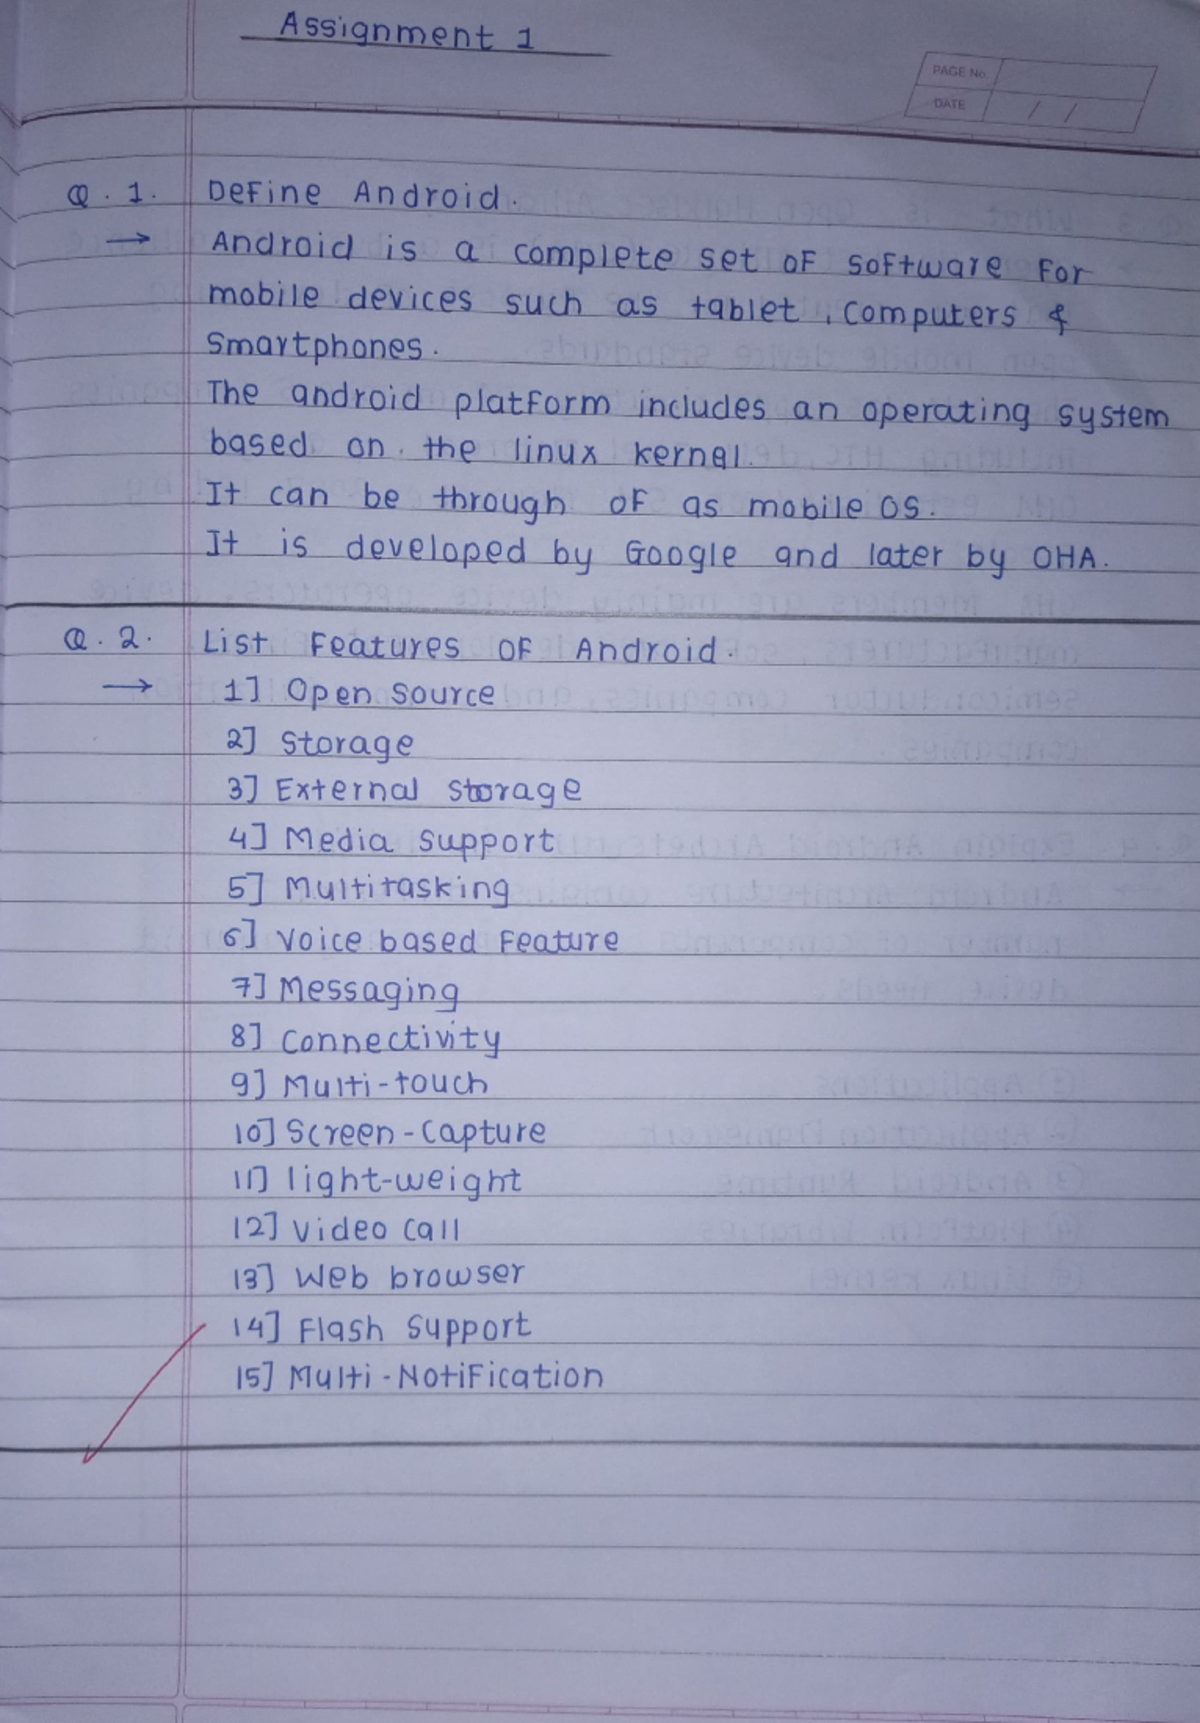 Assignment 1
PAGE No.
DATE / /
Q. 1. Define Android.
→ Android is a complete set of software for
mobile devices such as tablet, computers &
Smartphones.
The android platform includes an operating system
based on the linux kernel.
It can be through of as mobile OS.
It is developed by Google and later by OHA.
Q. 2. List Features of Android.
→ 1] Open Source
2] Storage
3] External storage
4] Media support
5] Multitasking
6] Voice based Feature
7] Messaging
8] Connectivity
9] Multi-touch
10] Screen-Capture
11] light-weight
12] Video call
13] Web browser
14] Flash Support
15] Multi-Notification